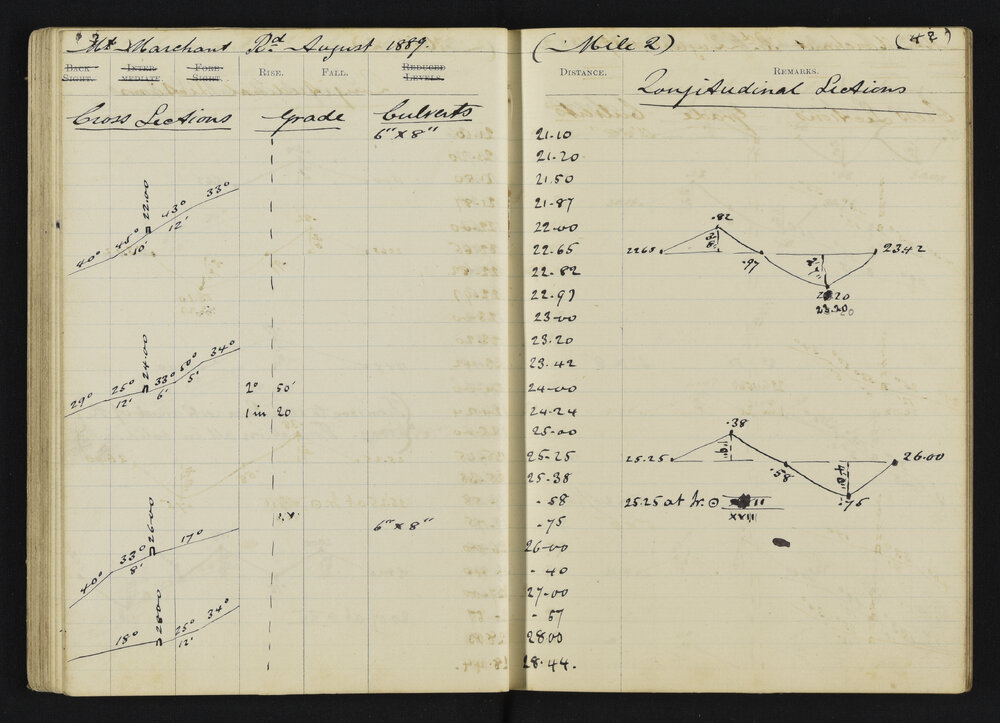 Mt Marchant Rd August 1889.
BACK SIGHT. INTERMEDIATE FORE SIGHT. RISE. FALL. REDUCED LEVELS.
Cross Sections Grade Culverts
6" x 8"
40° 45° 22.00 43° 33°
10' 12'
29° 25° 24.00 33° 50° 34°
12' 6' 5'
2° 50'
1 in 20
6" x 8"
40° 33° 26.00 17°
8'
18° 28.00 25° 34°
12'
(Mile 2) (42)
DISTANCE. REMARKS.
Longitudinal Sections
21.10
21.20
21.50
21.87
22.00
22.65
22.82
22.97
23.00
23.20
23.42
24.00
24.24
25.00
25.25
25.38
.58
.75
26.00
.40
27.00
.57
28.00
28.44.
.82
22.65 .97 23.42
23.20
.38
25.25 1'9" .58 4'0" 26.00
.75
25.25 at tr.
XXVII